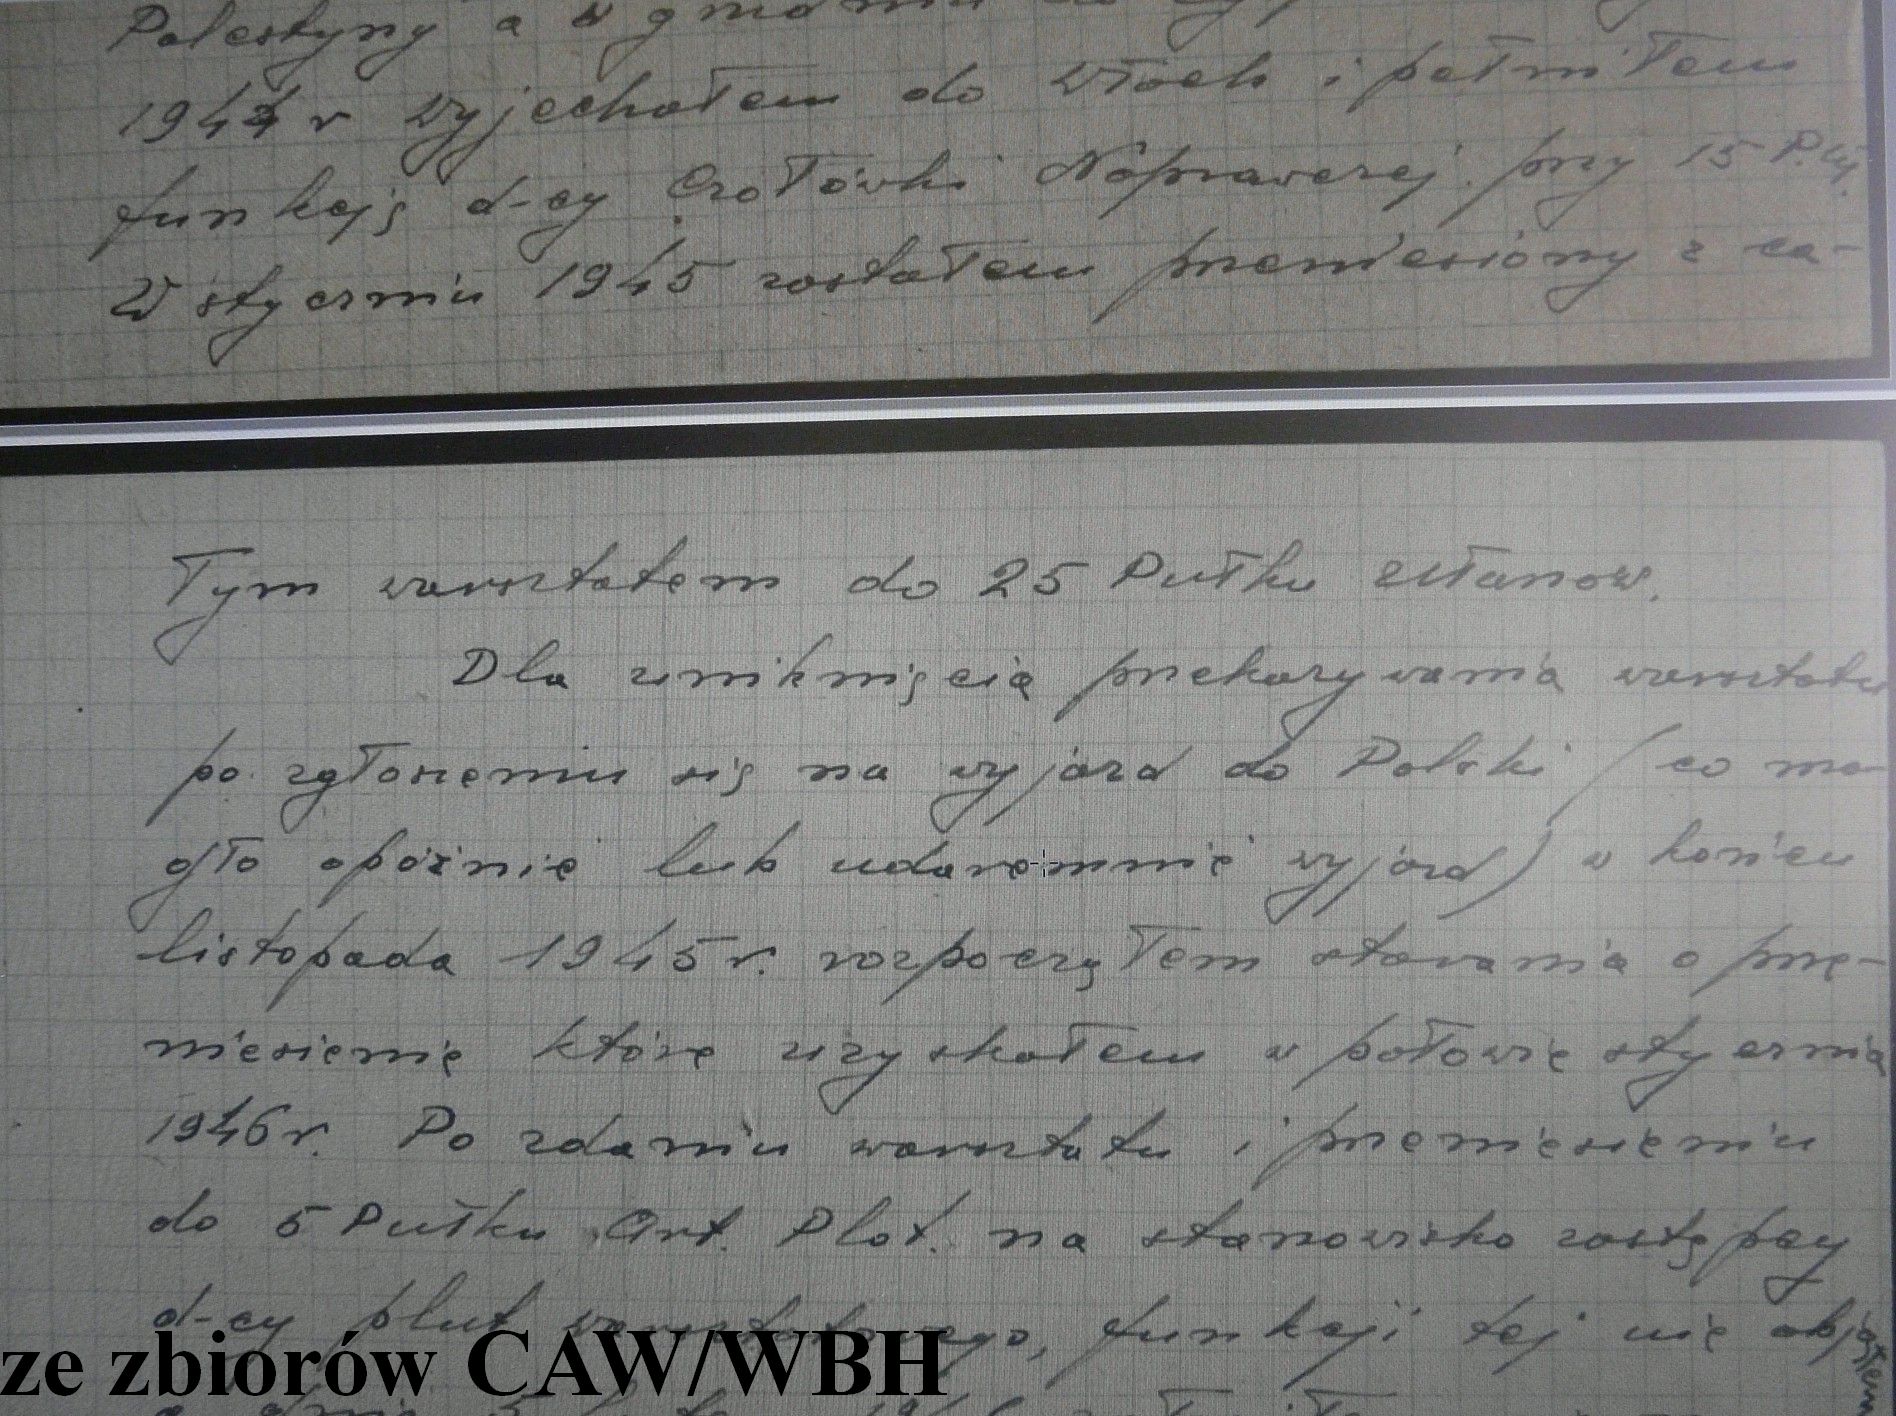 Palestyny a w grudniu do
1944 r wyjechałem do Włoch i pełniłem
funkcję d-cy Czołówki Naprawczej przy 15 P. Uł.
W styczniu 1945 zostałem przeniesiony z ca-
Tym warsztatem do 25 Pułku Ułanów.
Dla uniknięcia przekazywania warsztatu
po zgłoszeniu się na wyjazd do Polski (co mo-
gło opóźnić lub udaremnić wyjazd) w końcu
listopada 1945 r. rozpocząłem starania o prze-
niesienie które uzyskałem w połowie stycznia
1946 r. Po zdaniu warsztatu i przeniesieniu
do 5 Pułku Art. Plot. na stanowisko zastępcy
d-cy plut warsztatowego, funkcji tej nie objąłem
ze zbiorów CAW/WBH